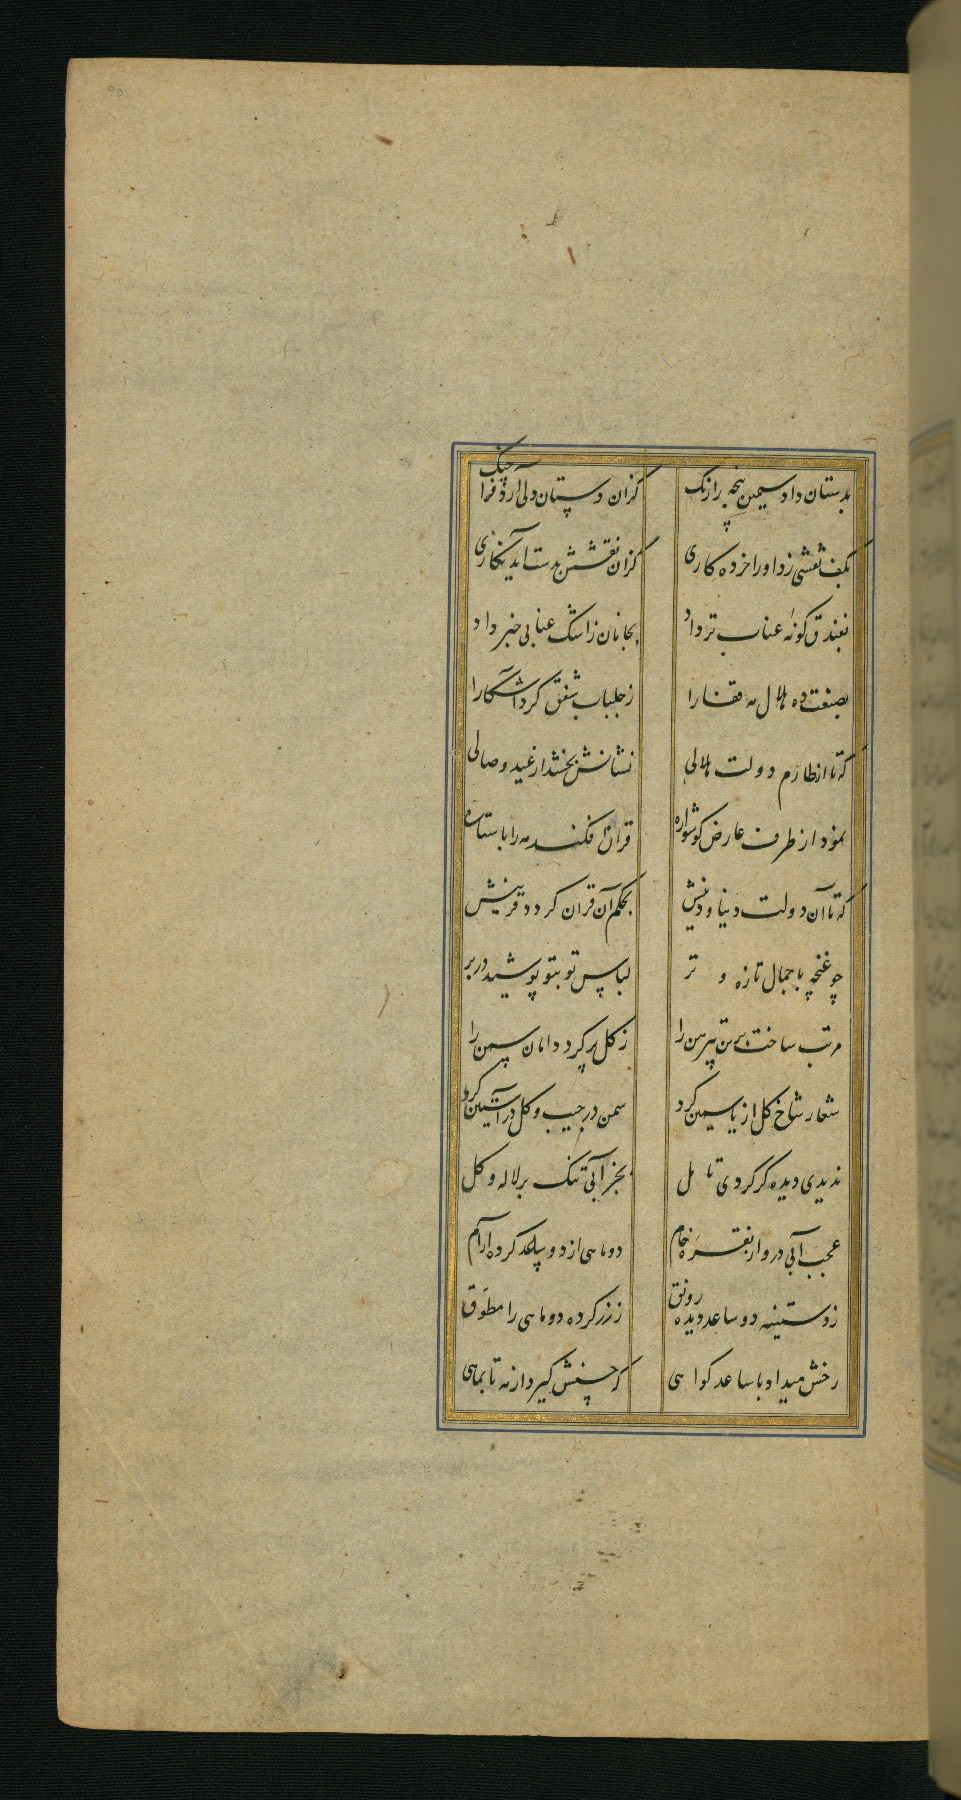 بدستان داد سیمین پنجه را رنک کزان دستان دلی آرد فرا چنک
بکف نقشی زد او را خرده کاری کزان نقشش بدست اید نکاری
بفندق کونهٔ عناب تر داد بجانان ز اشک عنابی خبر داد
بصنعت ده هلال مه قفا را ز جلباب شفق کرد آشکارا
که تا از طارم دولت هلالی نشانش بخشد از عید وصالی
نمود از طرف عارض کوشواره قران افکند مه را با ستاره
که تا آن دولت دنیا و دینش بحکم آن قران کردد قرینش
چو غنچه با جمال تازه و تر لباس تو بتو پوشید در بر
مرتب ساخت بر تن پیرهن را ز کل پر کرد دامان سمن را
شعار شاخ کل از یاسمین کرد سمن در جیب و کل در آستین کرد
ندیدی دیده کر کردی تامل بجز آبی تنک بر لاله و کل
عجب آبی درو از نقره خام دو ماهی از دو ساعد کرده آرام
ز دستینه دو ساعد دیده رونق ز زر کرده دو ماهی را مطوق
رخش میداد با ساعد کواهی که حسنش کیرد از مه تا بماهی